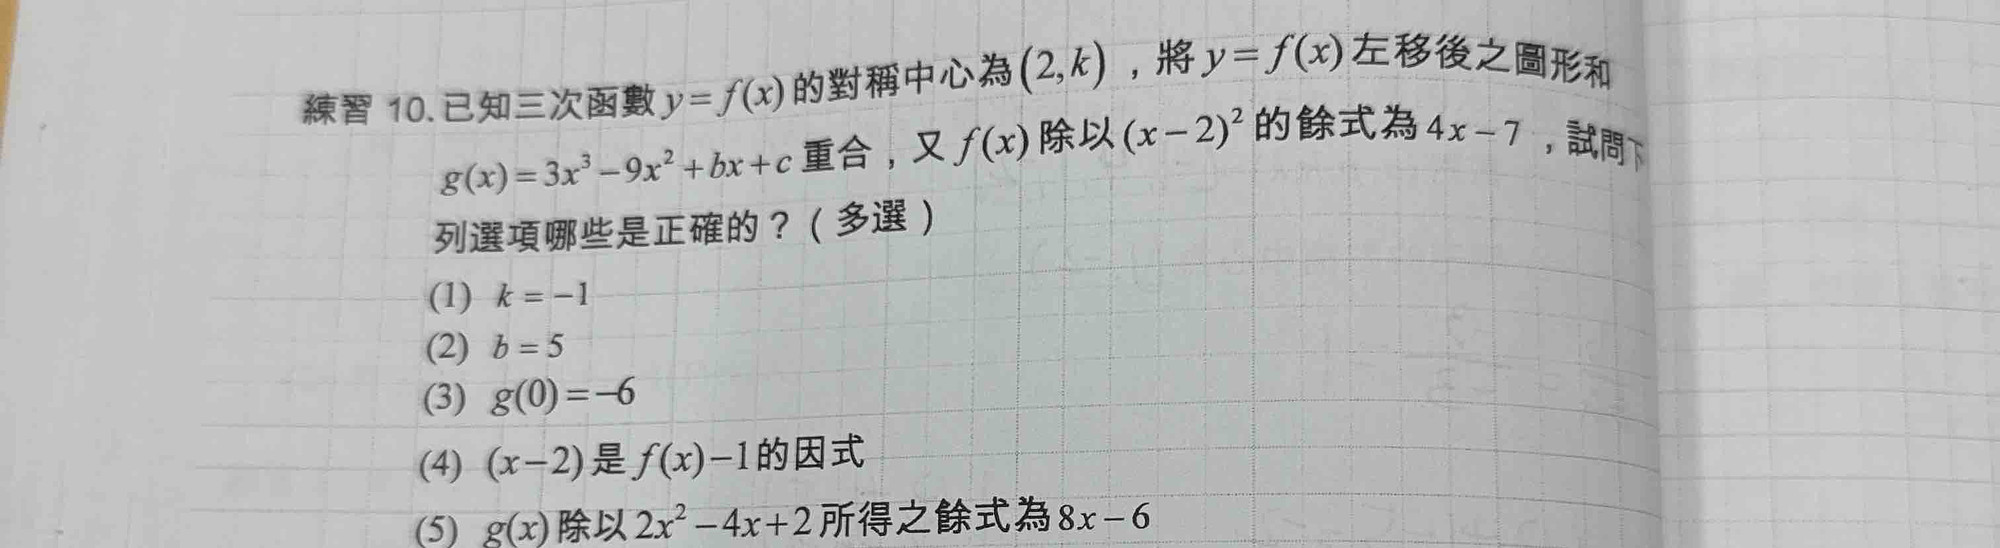 練習 10.已知三次函數 y=f(x) 的對稱中心為 (2,k) ，將 y=f(x) 左移後之圖形和
g(x)=3x³−9x²+bx+c 重合，又 f(x) 除以 (x−2)² 的餘式為 4x−7 ，試問下
列選項哪些是正確的？（多選）
(1) k=−1
(2) b=5
(3) g(0)=−6
(4) (x−2)是 f(x)−1的因式
(5) g(x) 除以 2x²−4x+2 所得之餘式為 8x−6